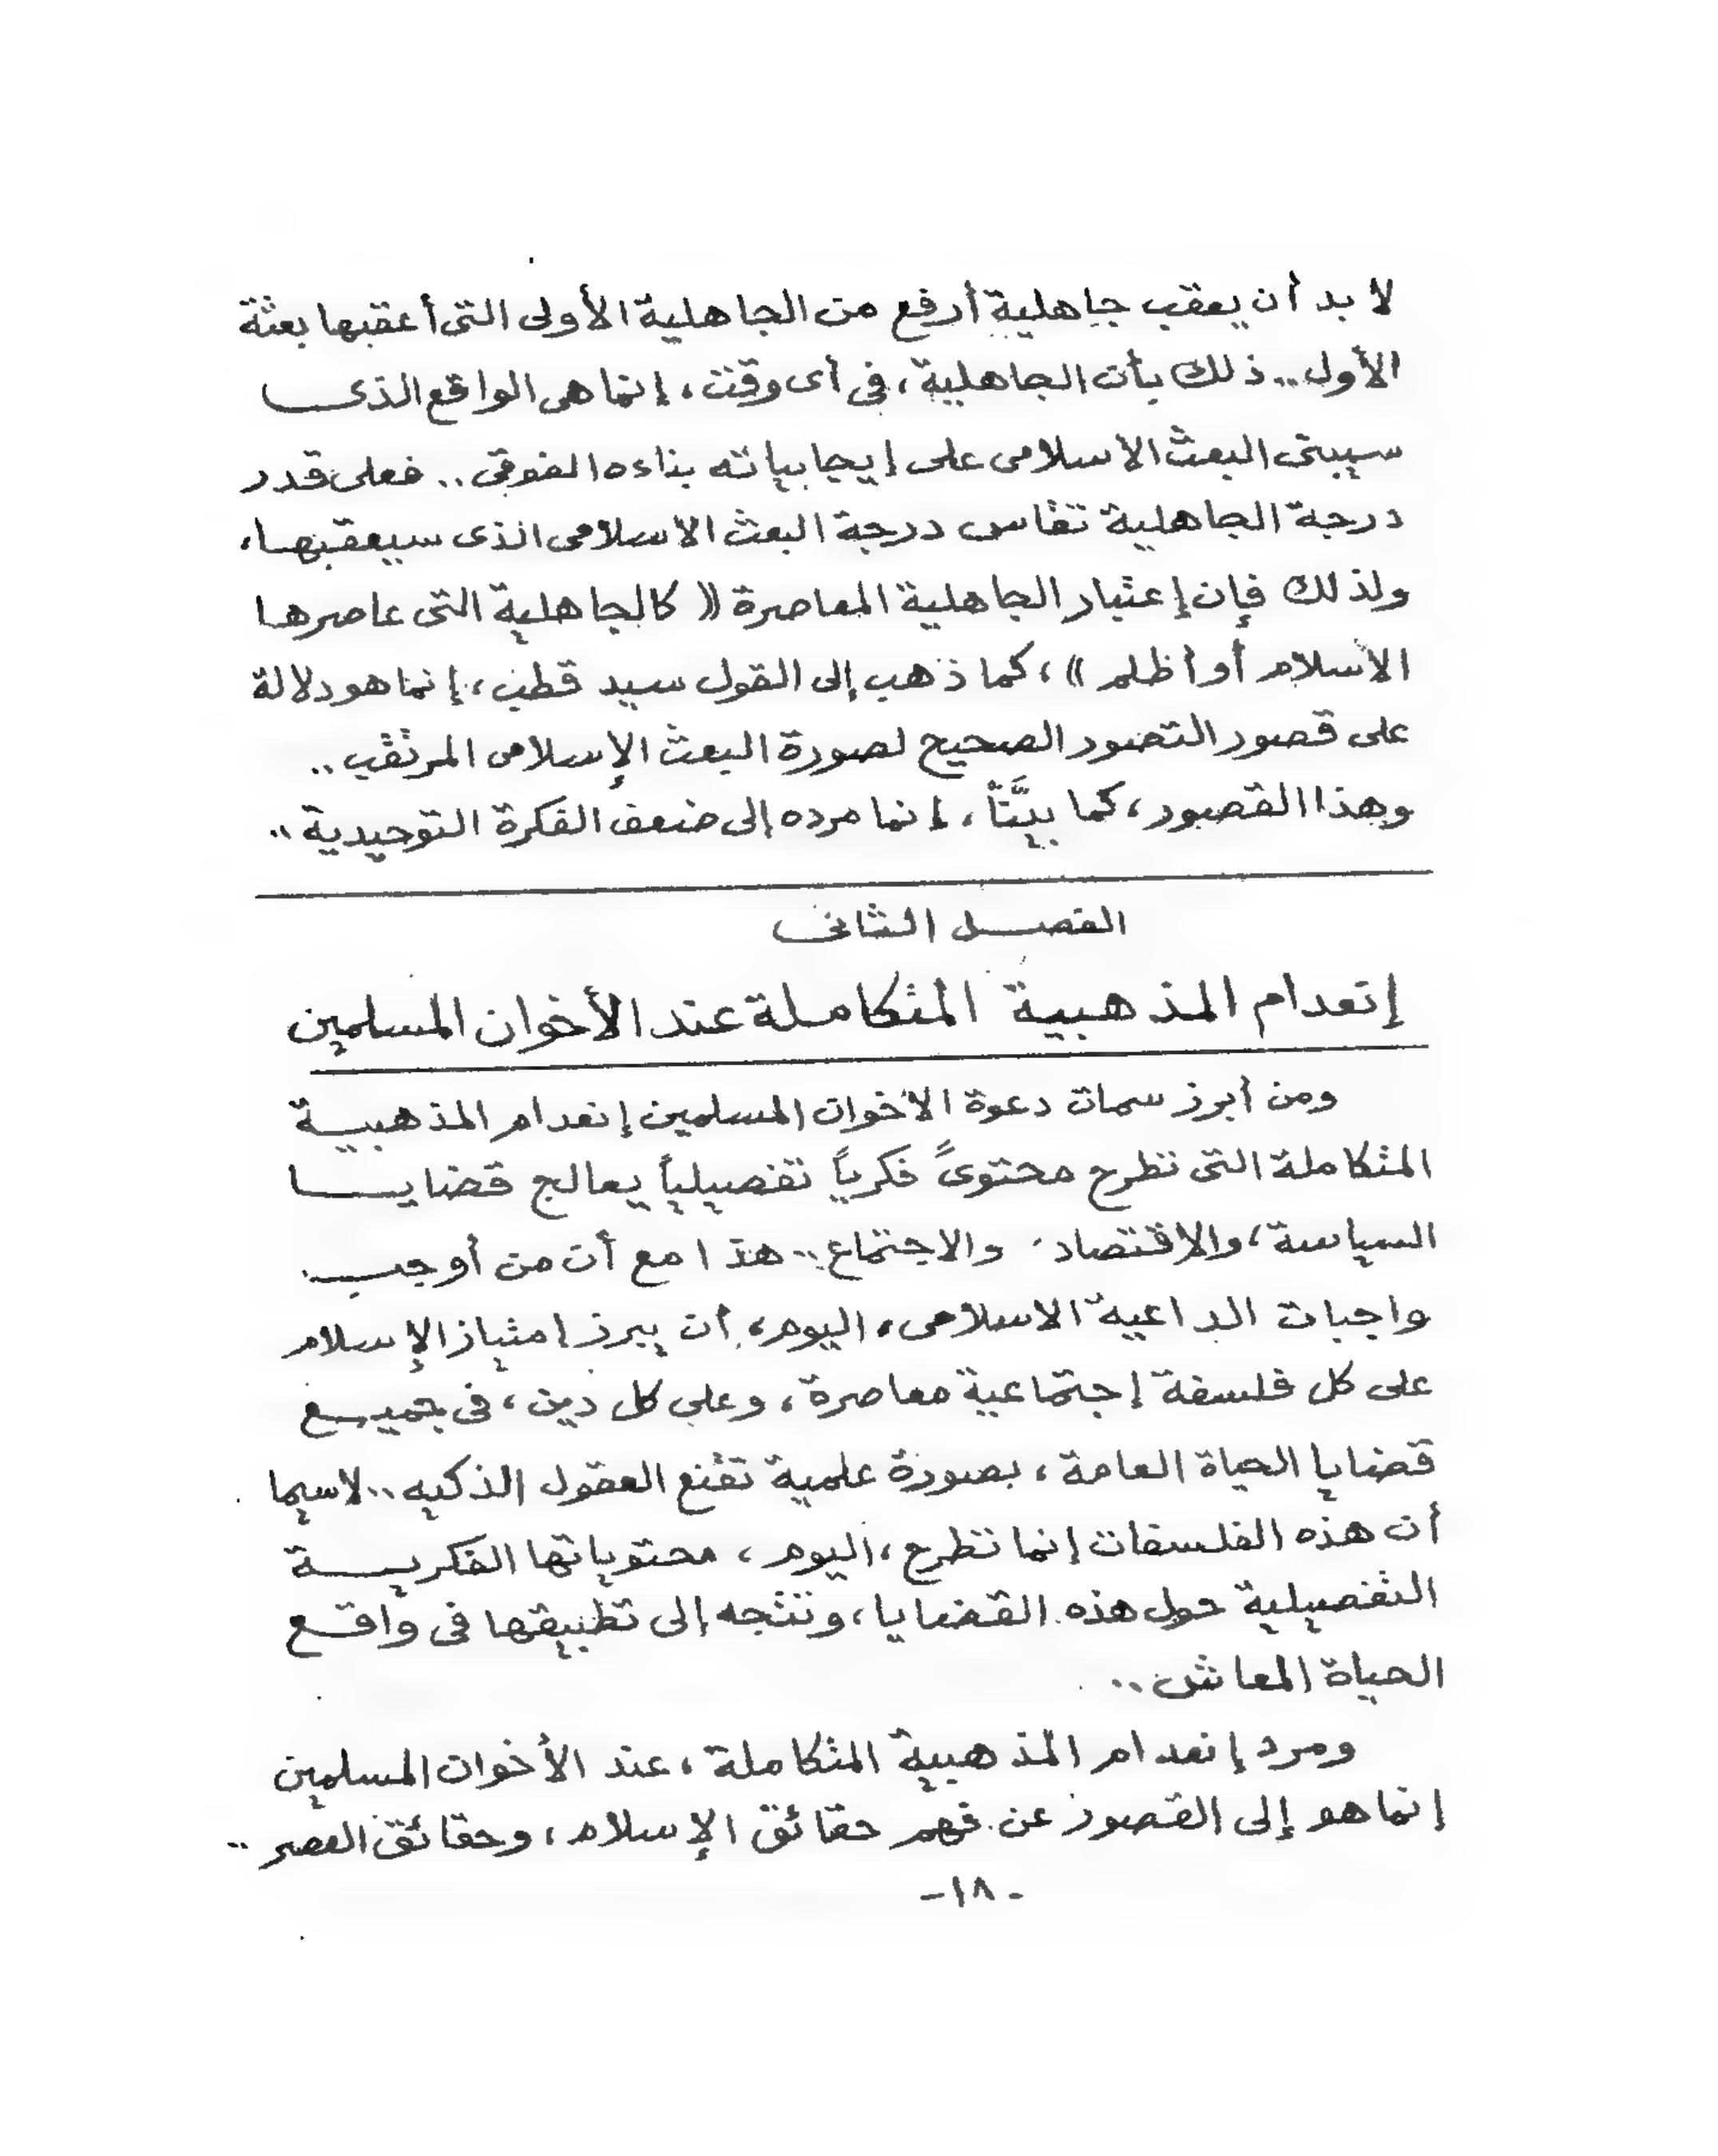 لا بد أن يعقب جاهلية أرفع من الجاهلية الأولى التى أعقبها بعثة
الأول.. ذلك بأن الجاهلية، فى أى وقت، إنما هى الواقع الذى
سيبنى البعث الاسلامى على إيجابياته بناءه الفوقى.. فعلى قدر
درجة الجاهلية تقاس درجة البعث الاسلامى الذى سيعقبها،
ولذلك فإن إعتبار الجاهلية المعاصرة (( كالجاهلية التى عاصرها
الاسلام أو أظلم ))، كما ذهب إلى القول سيد قطب، إنما هو دلالة
على قصور التصور الصحيح لصورة البعث الإسلامى المرتقب..
وهذا القصور، كما بيَّنَّا، إنما مرده إلى ضعف الفكرة التوحيدية..
الفصل الثانى
إنعدام المذهبية المتكاملة عند الأخوان المسلمين
ومن أبرز سمات دعوة الأخوان المسلمين إنعدام المذهبية
المتكاملة التى تطرح محتوىً فكرياً تفصيلياً يعالج قضايا
السياسة، والإقتصاد، والاجتماع.. هذا مع أن من أوجب
واجبات الداعية الاسلامى، اليوم، أن يبرز إمتياز الإسلام
على كل فلسفة إجتماعية معاصرة، وعلى كل دين، فى جميع
قضايا الحياة العامة، بصورة علمية تقنع العقول الذكيه.. لاسيما
أن هذه الفلسفات إنما تطرح، اليوم، محتوياتها الفكرية
التفصيلية حول هذه القضايا، وتتجه إلى تطبيقها فى واقع
الحياة المعاش..
ومرد إنعدام المذهبية المتكاملة، عند الأخوان المسلمين
إنما هو إلى القصور عن فهم حقائق الإسلام، وحقائق العصر..
- ١٨ -